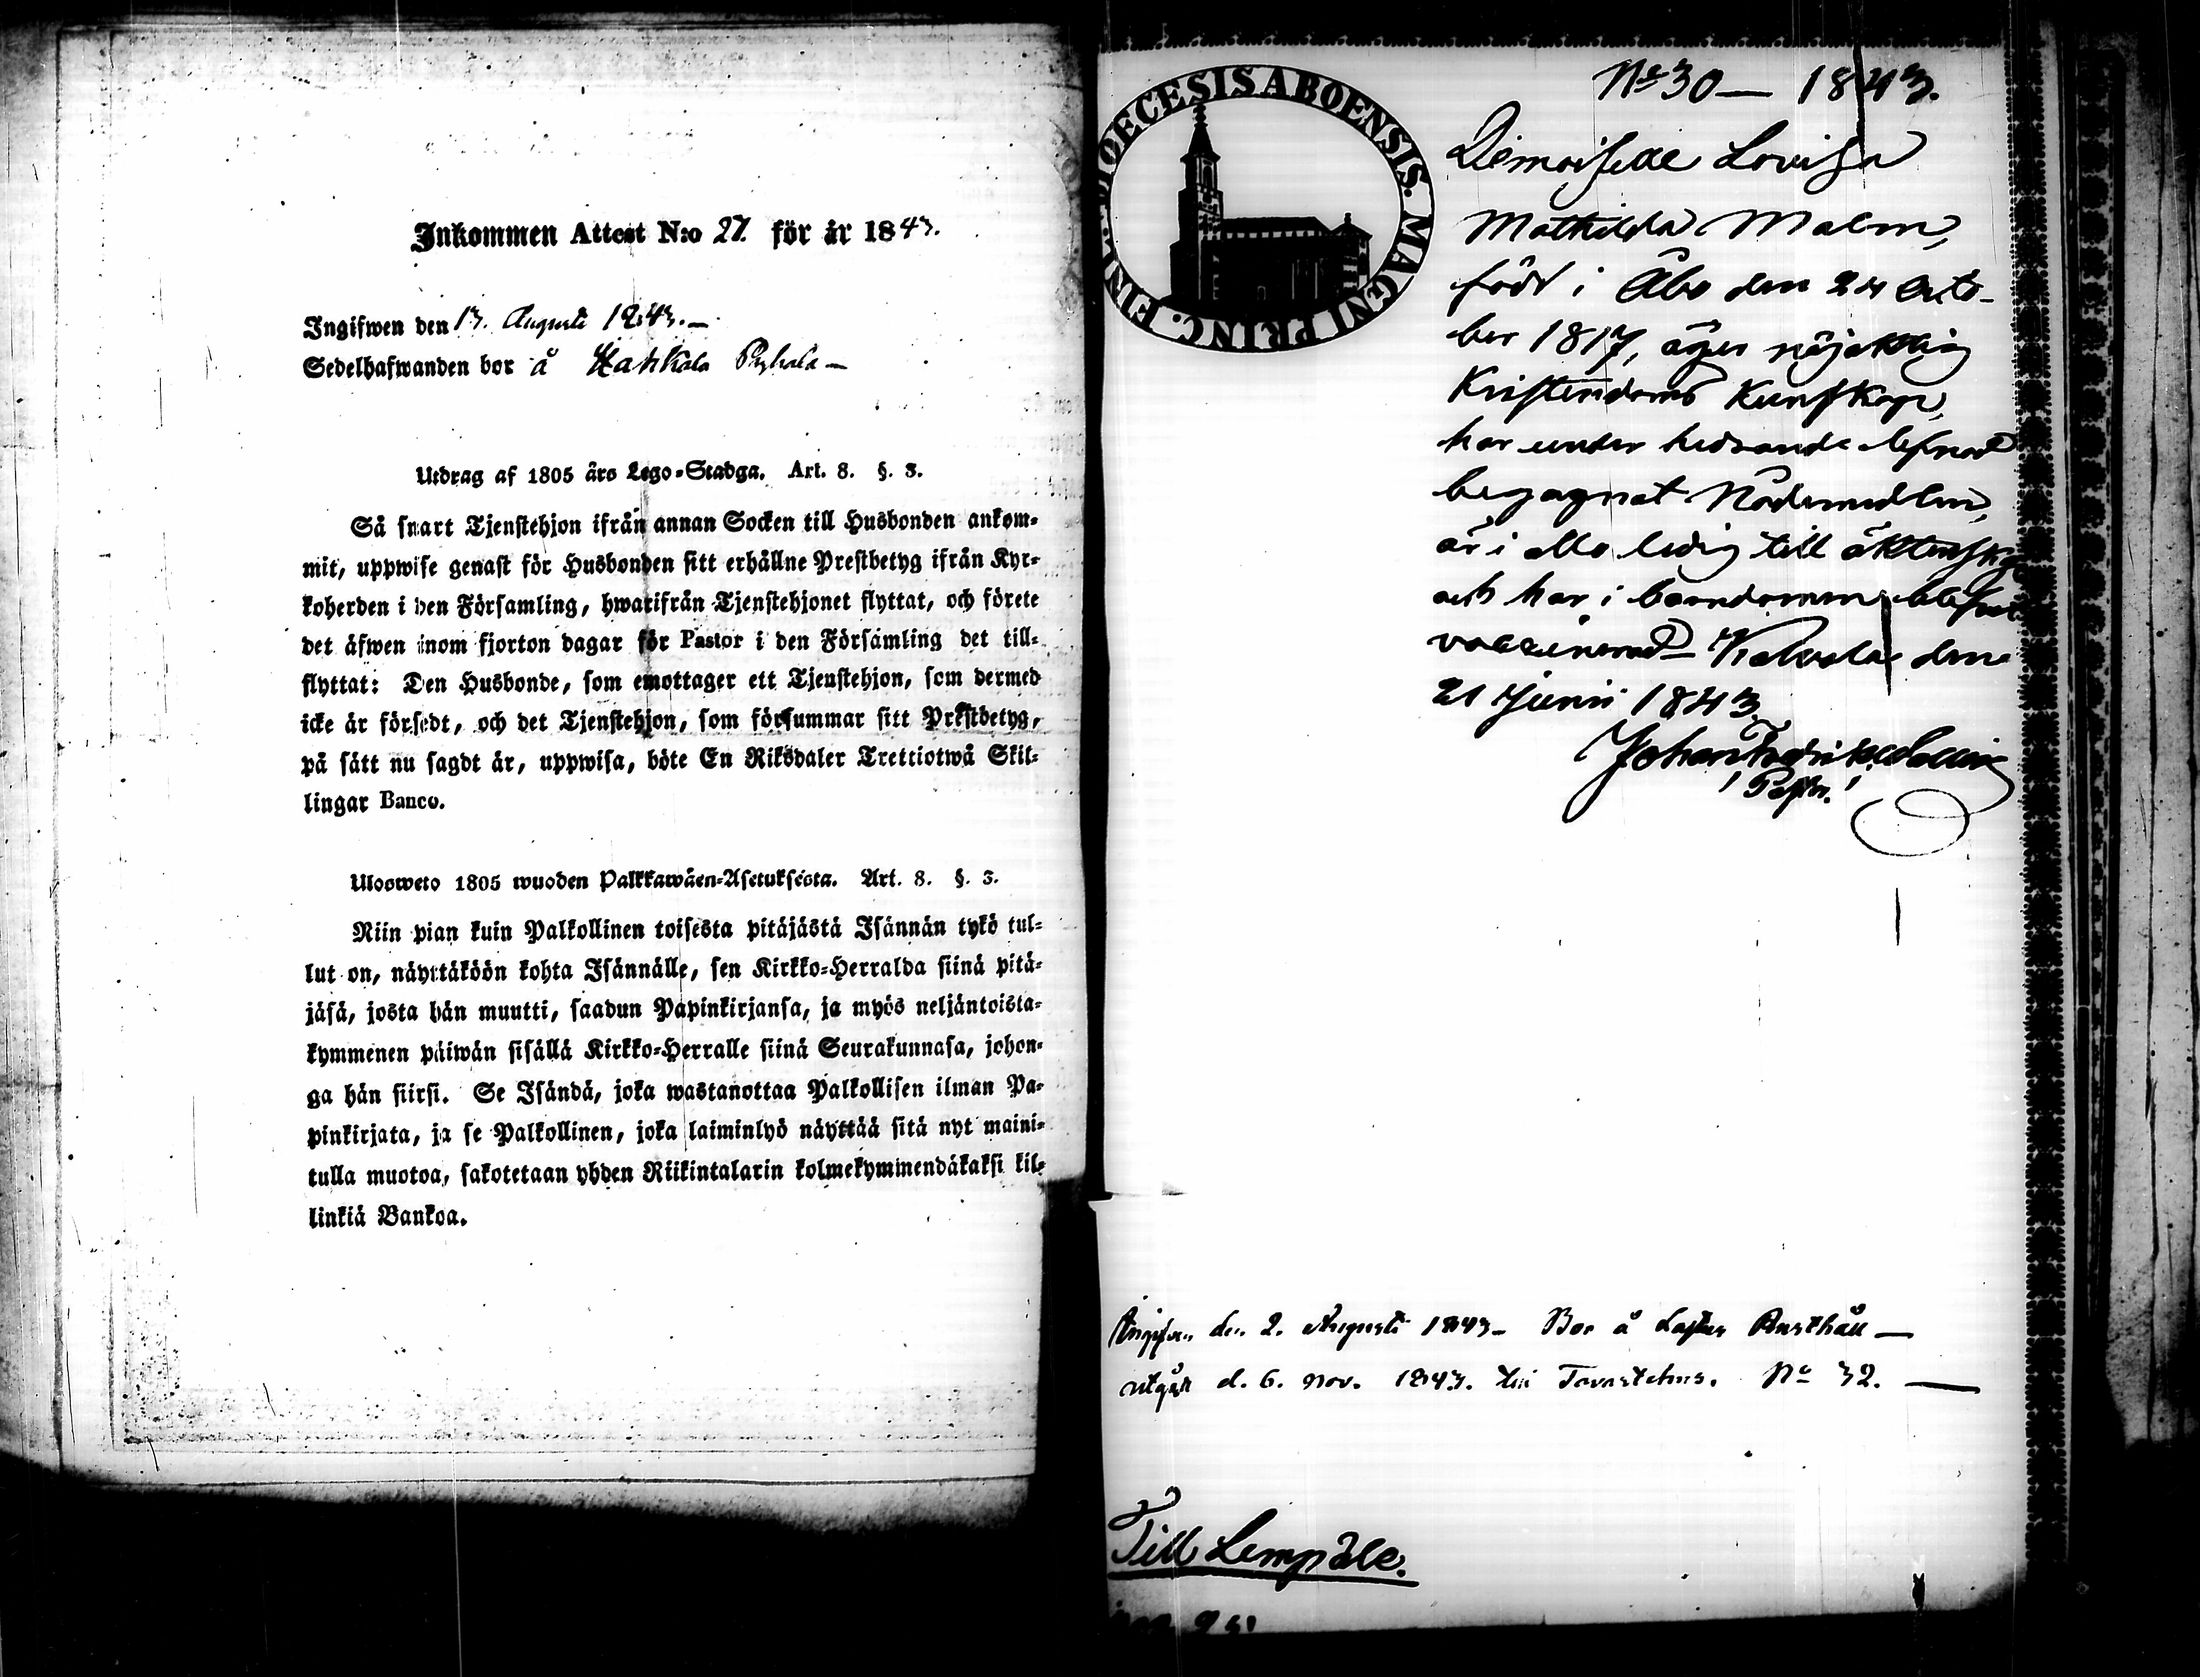 Inkommen Attest N:o 27. för år 1843.
Ingifwen den 13. Augusti 1843.—
Sedelhafwanden bor å Hakkala Pyhälä —
Utdrag af 1805 års Lego-Stadga. Art. 8. §. 3.
Så snart Tjenstehjon ifrån annan Socken till Husbonden ankom-
mit, uppwise genast för Husbonden sitt erhållne Prestbetyg ifrån Kyr-
koherden i den Församling, hwarifrån Tjenstehjonet flyttat, och förete
det äfwen inom fjorton dagar för Pastor i den Församling det till-
flyttat: Den Husbonde, som emottager ett Tjenstehjon, som dermed
icke är försedt, och det Tjenstehjon, som försummar sitt Prestbetyg,
på sätt nu sagdt är, uppwisa, böte En Riksdaler Trettiotwå Skil-
lingar Banco.
Ulosweto 1805 wuoden Palkkawäen-Asetuksesta. Art. 8. §. 3.
Niin pian kuin Palkollinen toisesta pitäjästä Isännän tykö tul-
lut on, näyttäköön kohta Isännälle, sen Kirkko-Herralda siinä pitä-
jäsä, josta hän muutti, saadun Papinkirjansa, ja myös neljäntoista-
kymmenen päiwän sisällä Kirkko-Herralle siinä Seurakunnasa, johon-
ga hän siirsi. Se Isändä, joka wastanottaa Palkollisen ilman Pa-
pinkirjata, ja se Palkollinen, joka laiminlyö näyttää sitä nyt maini-
tulla muotoa, sakotetaan yhden Riikintalarin kolmekymmendäkaksi kil-
linkiä Bankoa.
DIOECESIS ABOENSIS. MAGNI PRINC. FINL.
No 30 — 1843.
Demoiselle Lovisa
Mathilda Malm,
född i Åbo den 24 Octo-
ber 1817, äger nöjaktig
Kristendoms Kunskap,
har under hedrande lefnad
begagnat Nådemedlen,
är i allo ledig till äktenskap
och har i barndomen blifvit
vaccinerad — Kalvola den
21 Junii 1843.
Johan Fredrik
Pastor.
Ingifven den 2. Augusti 1843 — Bor å Lastus Rusthåll —
utgått d. 6. Nov. 1843. till Tavastehus. No 32. —
Till Lempäle.